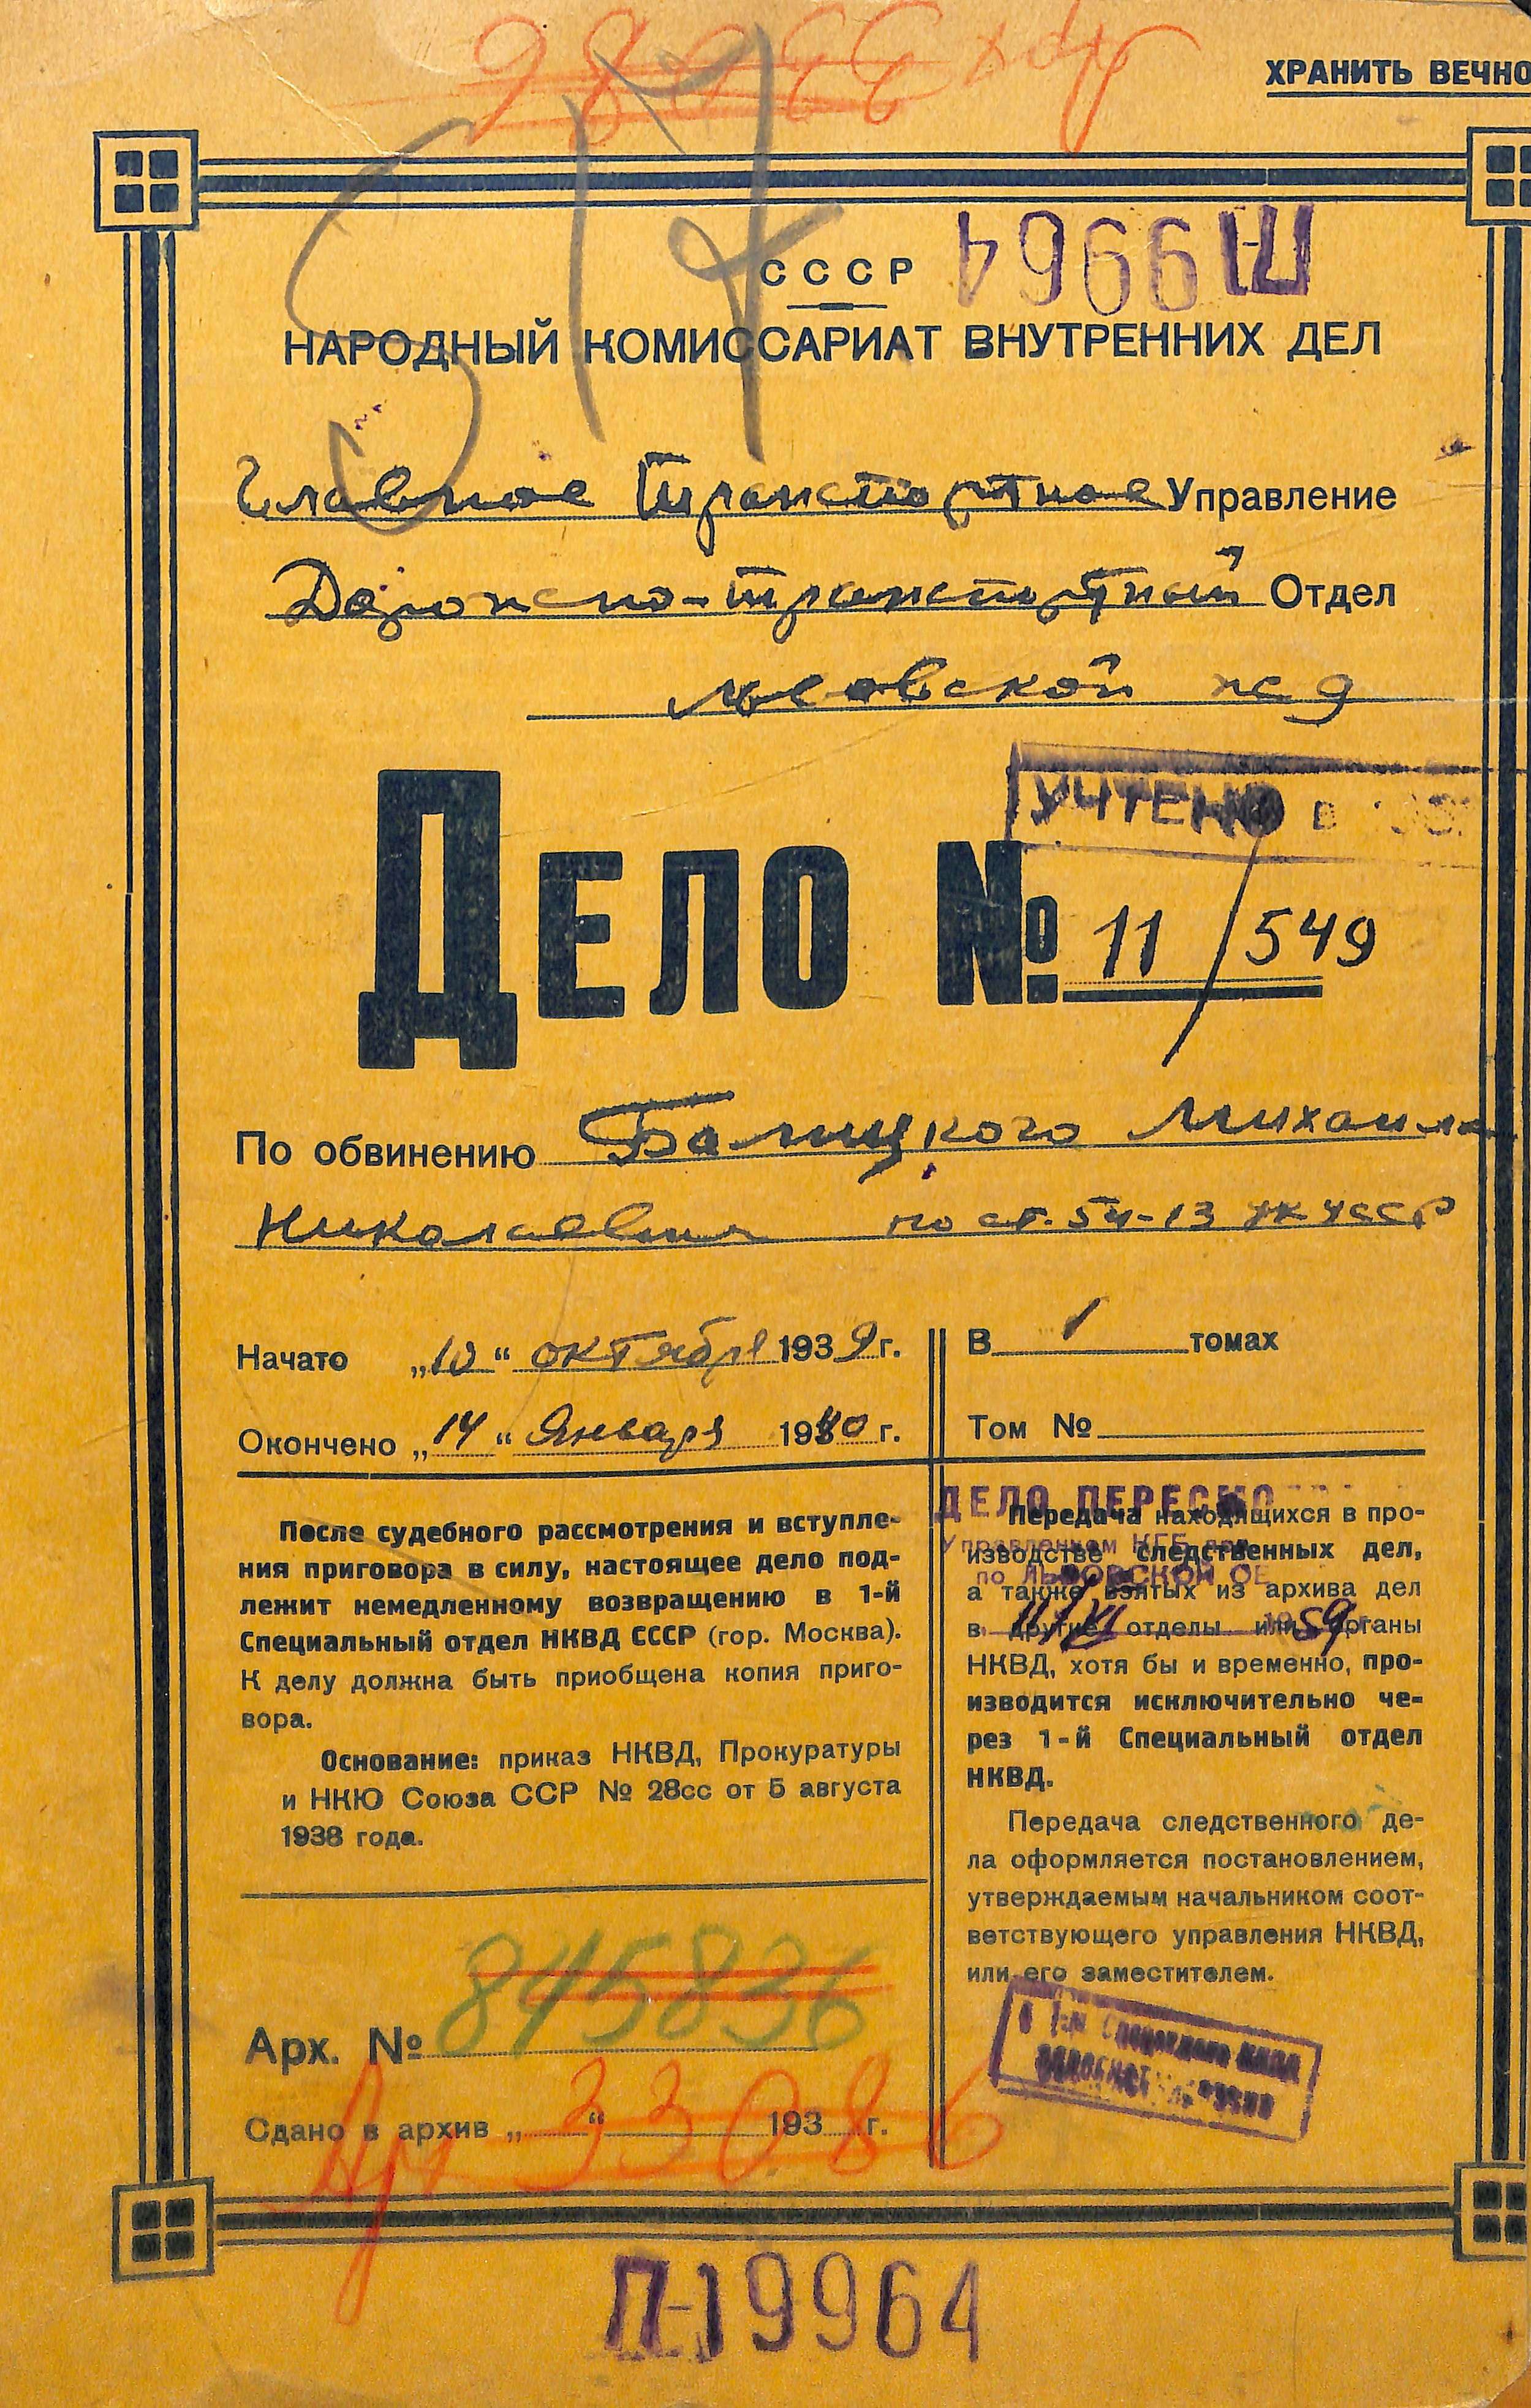 ХРАНИТЬ ВЕЧНО
517
П-19964
СССР
НАРОДНЫЙ КОМИССАРИАТ ВНУТРЕННИХ ДЕЛ
Главное Транспортное Управление
Дорожно-транспортный Отдел
Львовской жд
УЧТЕНО В
ДЕЛО № 11/549
По обвинению Балицкого Михаила
Николаевича по ст. 54-13 УК УССР
Начато „10“ октября 1939 г.
Окончено „14“ Января 1940 г.
В 1 томах
Том №
После судебного рассмотрения и вступле-
ния приговора в силу, настоящее дело под-
лежит немедленному возвращению в 1-й
Специальный отдел НКВД СССР (гор. Москва).
К делу должна быть приобщена копия приго-
вора.
Основание: приказ НКВД, Прокуратуры
и НКЮ Союза ССР № 28сс от 5 августа
1938 года.
ДЕЛО ПЕРЕСМО
Управлением КГБ при
по ЛЬВОВСКОЙ ОБ
11/VI 1959
Передача находящихся в про-
изводстве следственных дел,
а также взятых из архива дел
в другие отделы или органы
НКВД, хотя бы и временно, про-
изводится исключительно че-
рез 1-й Специальный отдел
НКВД.
Передача следственного де-
ла оформляется постановлением,
утверждаемым начальником соот-
ветствующего управления НКВД,
или его заместителем.
Арх. № 845836
Сдано в архив „ “ 193 г.
Арх 33086
П-19964